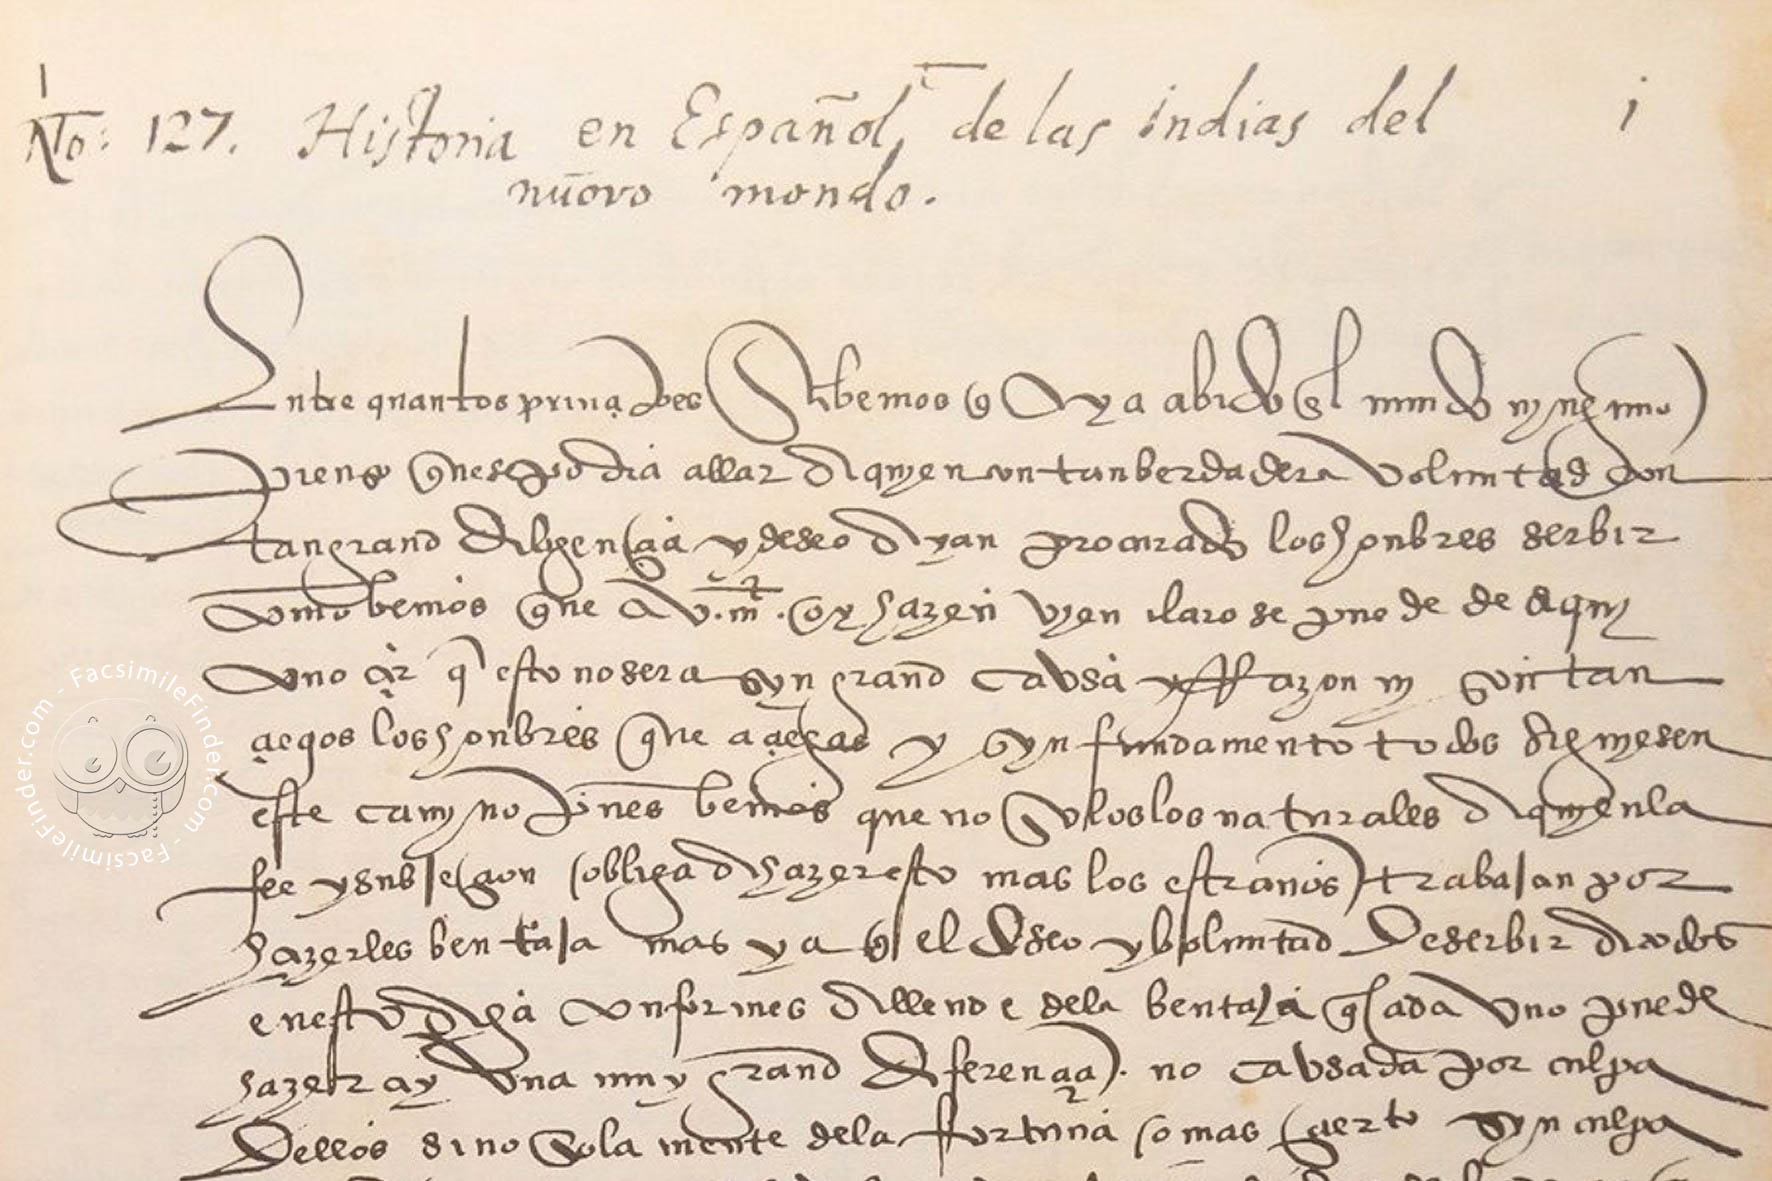 No: 127. Historia en Español, de las indias del i
nuovo mondo.
Entre quantos prinçipes sabemos q aya abido en el mundo ninguno
pienso que se podria allar de quien con tan berdadera voluntad con
tan grand diligençia y deseo ayan procurado los honbres serbir
como bemos que a v. mt. oy hazen vyen claro se puede de aqui
conoçer q esto no sera syn grand cabsa y rrazon ni son tan
çiegos los honbres que a çiegas y syn fundamento todos siguiesen
este camyno pues bemos que no solo los naturales a quien la
fee y subjeçion obliga a hazer esto mas los estraños trabajan por
hazerles bentaja mas ya q el deseo y boluntad de serbir a todos
en esto haga conformes allende de la bentaja q cada vno puede
hazer ay vna muy grand diferençia. no cabsada por culpa
dellos sino sola mente de la fortuna o mas çierto syn culpa
FacsimileFinder.com - FacsimileFinder.com - Facsimile